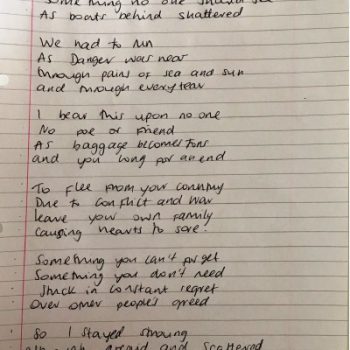 Something no one should see
As boats behind shattered
We had to run
As Danger was near
through pains of sea and sun
and through every tear
I bear this upon no one
No foe or friend
As baggage becomes tons
and you long for an end
To Flee From your country
Due to conflict and war
leave your own family
Causing hearts to sore!
Something you can't forget
Something you don't need
Stuck in constant regret
Over other people's greed
So I stayed strong
afraid and scattered